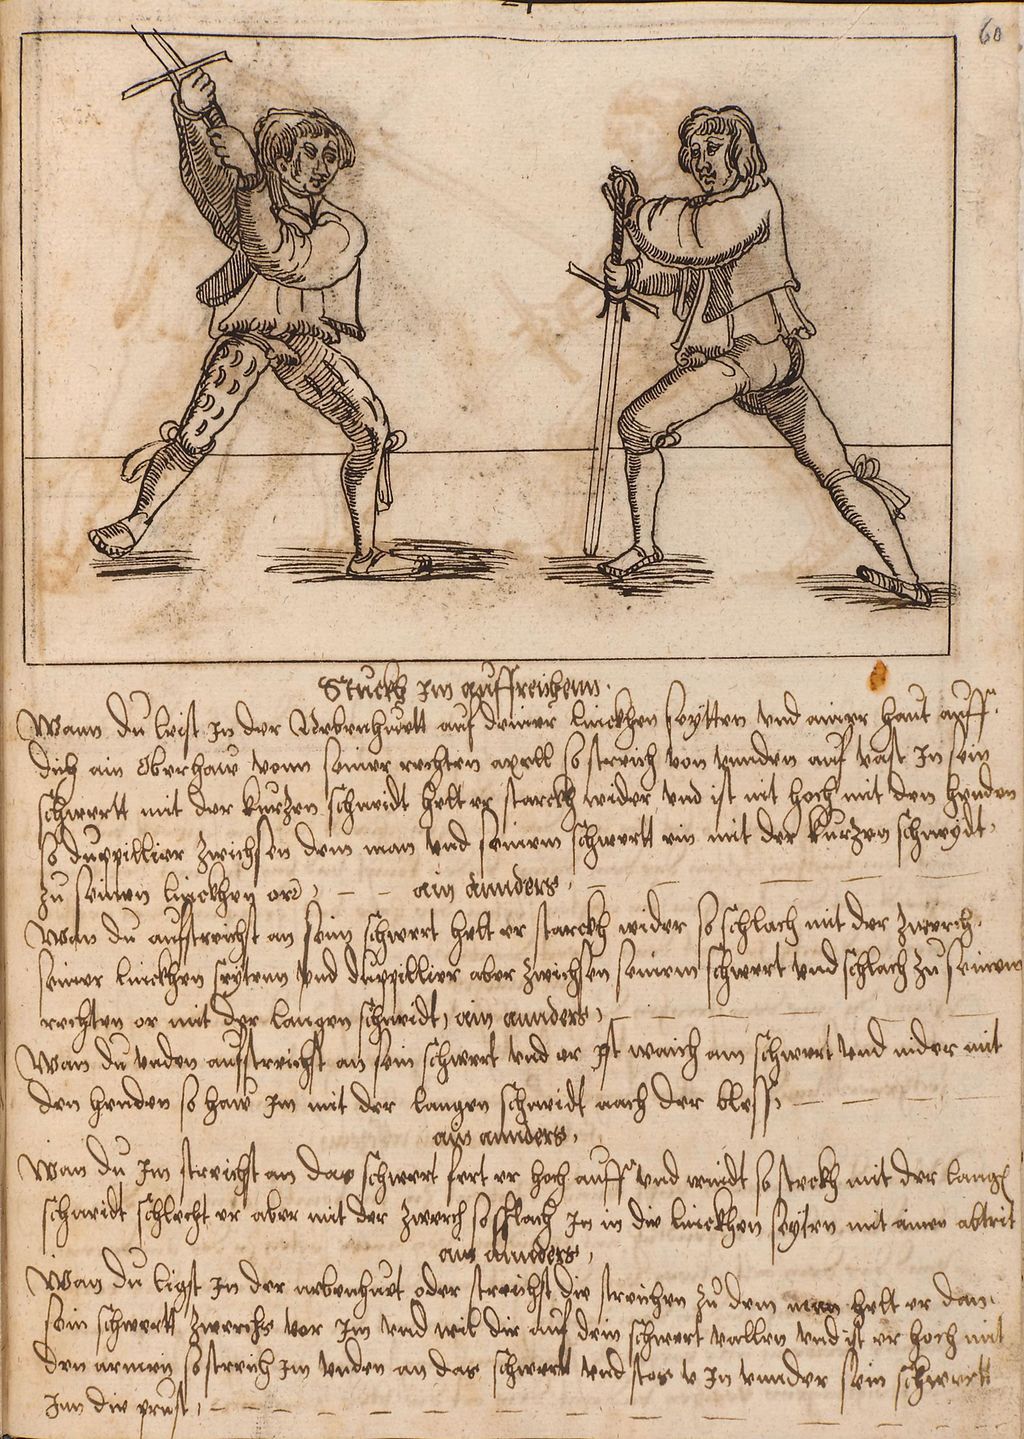 60
Stuckh Im auffstreichenn.
Wann du ligst In der Nebenhuett auf deiner linckhen seytten vnd ainer haut auff
dich ain Oberhaw vonn seiner rechten axell so streich von vnnden auf vast In sein
schwertt mit der kurzen schneidt helt er starckh wider vnd ist nit hoch mit den henden
so duppillier zwichsen dem man vnd seinem schwertt ein mit der kurzen schneydt
zu seinen linckhen or, – – ain annders,
Wan du aufstreichst an sein schwert helt er starckh wider so schlach mit der zwerch
seiner linckhen seytenn vnd duppillier aber zwichsen seinem schwert vnd schlach zu seinem
rechten or mit der langen schneidt, ain annders,
Wan du vnden aufstreichst an sein schwert vnd er Ist waich am schwert vnd nider mit
den henden so haw Im mit der langen schneidt nach der bless,
ain annders,
Wan du Im streichst an das schwert fert er hoch auff vnd windt so streckh mit der lange
schneidt schlecht er aber mit der zwerch so schlach In in die linckhen seyten mit ainem abtrit
ain annders,
Wan du ligst In der nebenhuet oder streichst die streichen zu dem man helt er dan
sein schwertt zwerchs vor Im vnd wil dir auf dein schwert vallen vnd ist er hoch mit
den armen so streich Im vnden an das schwertt vnd stos In vnnder sein schwertt
Inn die prust,